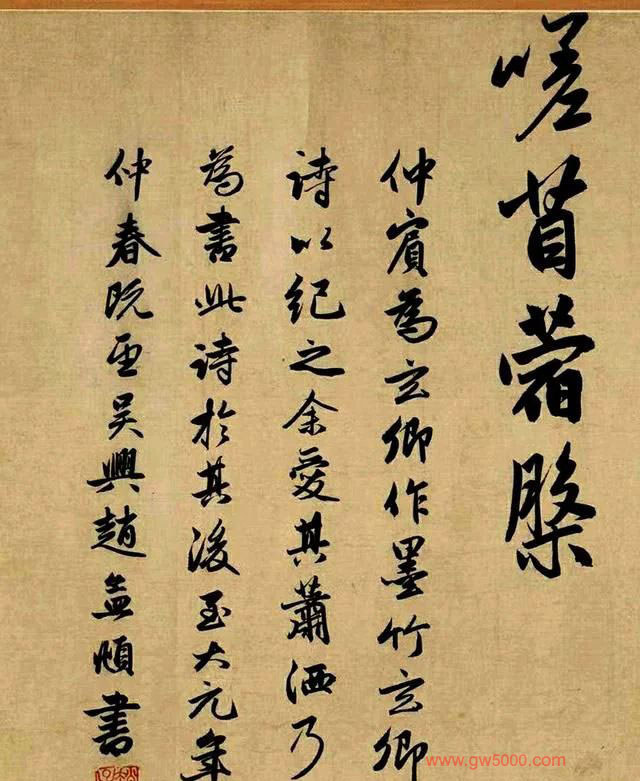 嗟苜蓿槃
仲賓為玄卿作墨竹玄卿
詩以紀之余愛其蕭洒乃
為書此詩於其後至大元年
仲春既望吳興趙孟頫書
www.gw5000.com